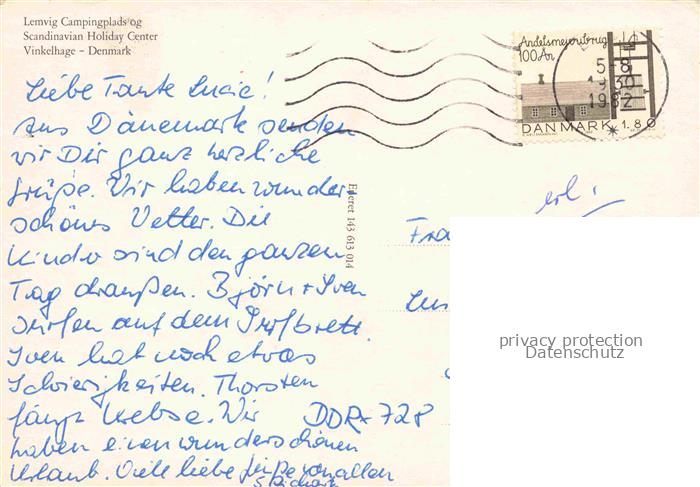 Lemvig Campingplads og
Scandinavian Holiday Center
Vinkelhage – Denmark
Andelsmejeribrug
100 År
DANMARK 1.80
1982
Liebe Tante Lucie!
Aus Dänemark senden
wir Dir ganz herzliche
Grüße. Wir haben wunder-
schönes Wetter. Die
Kinder sind den ganzen
Tag draußen. Björn + Sven
surfen auf dem Surfbrett.
Sven hat noch etwas
Schwierigkeiten. Thorsten
fängt Krebse. Wir
haben einen wunderschönen
Urlaub. Viele liebe Grüße von allen
Eneret 143 613 014
erl.
Fra
DDR-728
privacy protection
Datenschutz